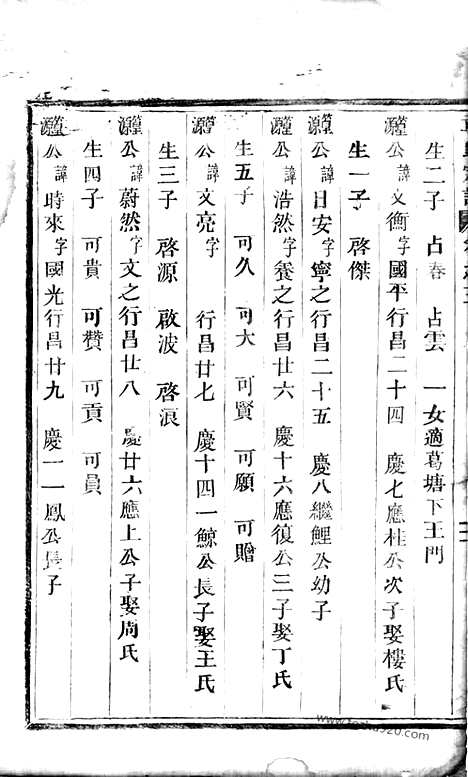 生二子 占春 占雲 一女適葛塘下王門
瑾公諱文衡字國平行昌二十四 慶七應桂公次子娶樓氏
生一子 啓傑
瑾公諱日安字寧之行昌二十五 慶八繼鯉公幼子
瑾公諱浩然字養之行昌廿六 慶十六應復公三子娶丁氏
生五子 可久 可大 可賢 可願 可贈
公諱文亮字 行昌廿七 慶十四一鯨公長子娶王氏
生三子 啓源 啟波 啓浪
公諱蔚然字文之行昌廿八 慶廿六應上公子娶周氏
生四子 可貴 可贊 可貢 可員
公諱時來字國光行昌廿九 慶一一鳳公長子